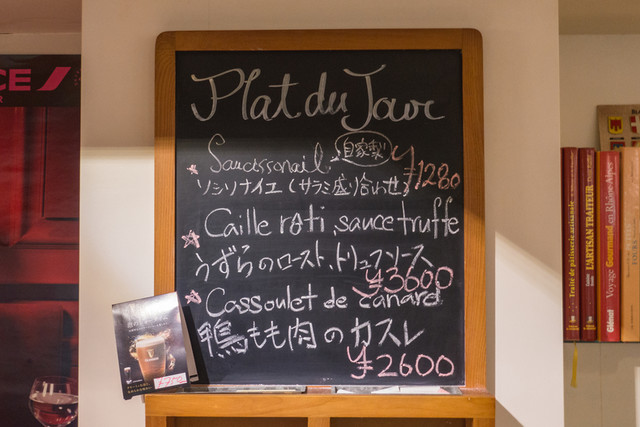 CE
Plat du Jour
Saucissonail 自家製
ソシソナイエ (サラミ盛り合いせ) ¥1280
Caille roti, sauce truffe
うずらのロースト, トリュフソース
¥3600
Cassoulet de canard
鴨もも肉のカスレ
¥2600
Traité de pâtisserie artisanale
L'ARTISAN TRAITEUR
Voyage Gourmand en Rhône-Alpes
Glénat